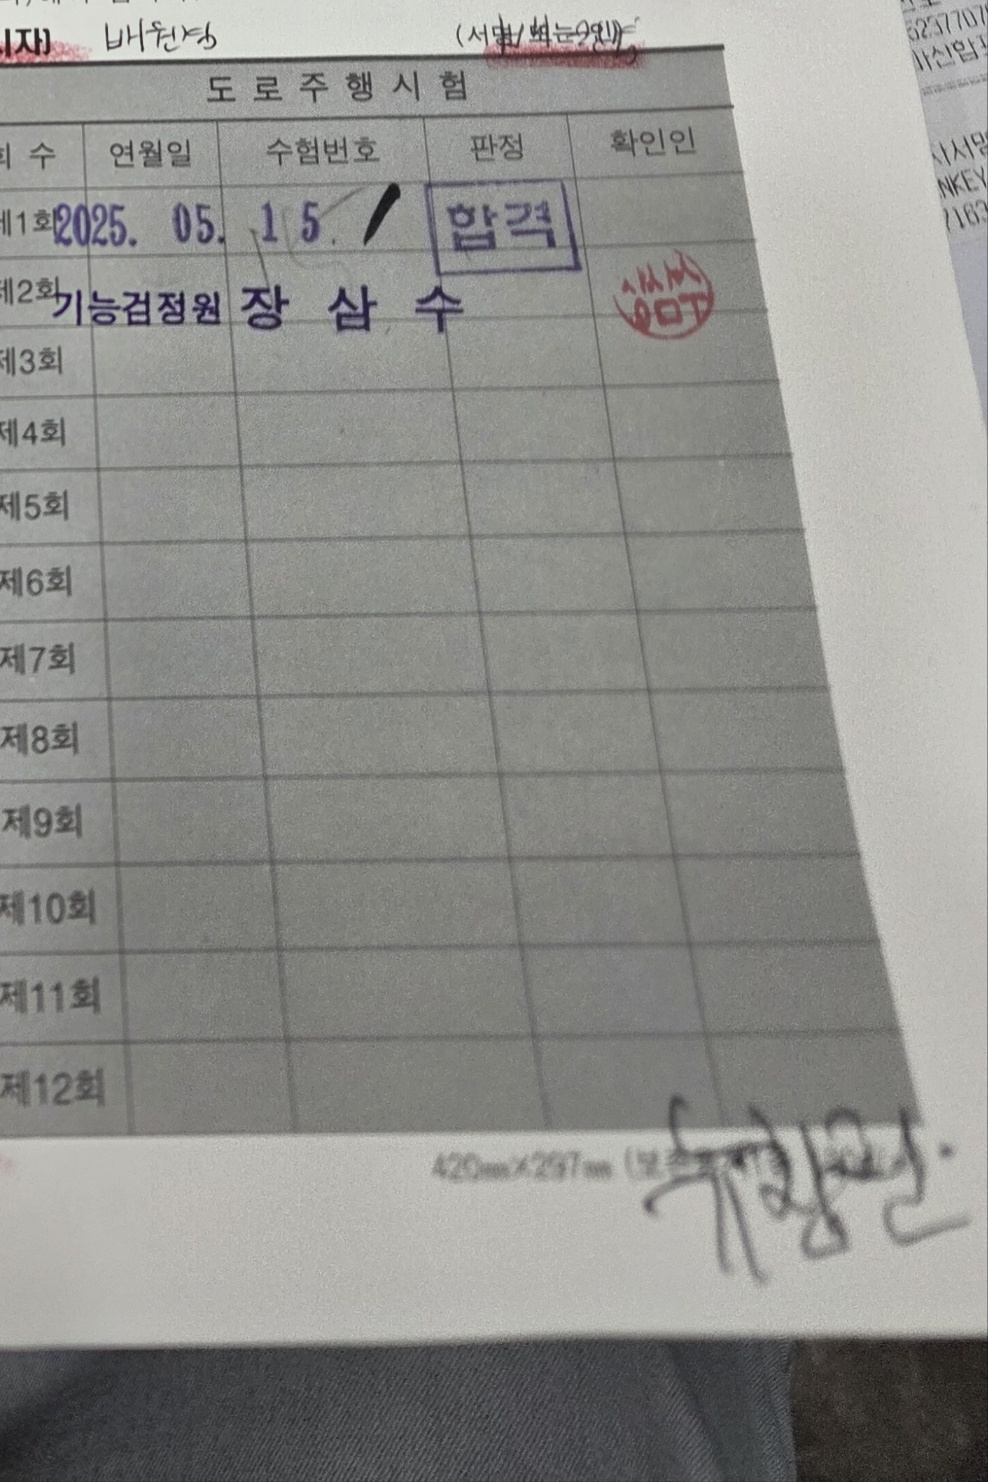 배원정
(서명 또는 인)
도로주행시험
회 수 연월일 수험번호 판정 확인인
제1회 2025. 05. 15. 합격
제2회 기능검정원 장 삼 수
제3회
제4회
제5회
제6회
제7회
제8회
제9회
제10회
제11회
제12회
420㎜×297㎜